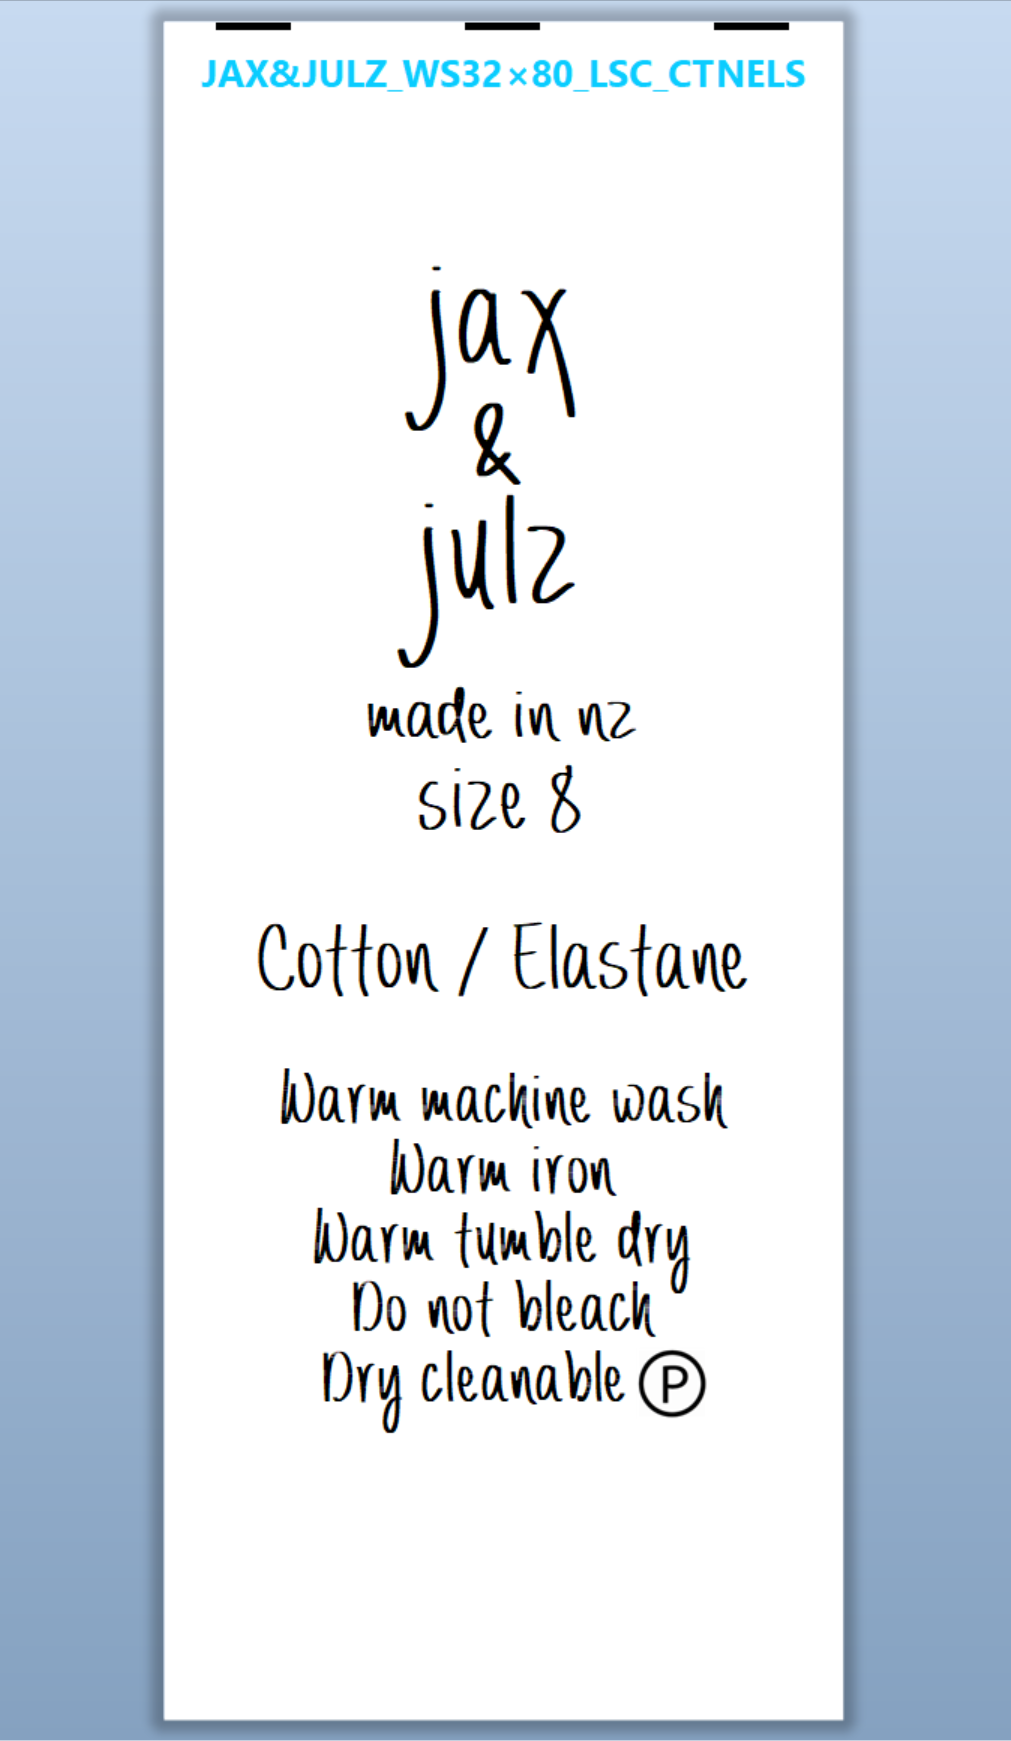 JAX&JULZ_WS32×80_LSC_CTNELS
jax
&
julz
made in nz
size 8
Cotton / Elastane
Warm machine wash
Warm iron
Warm tumble dry
Do not bleach
Dry cleanable Ⓟ